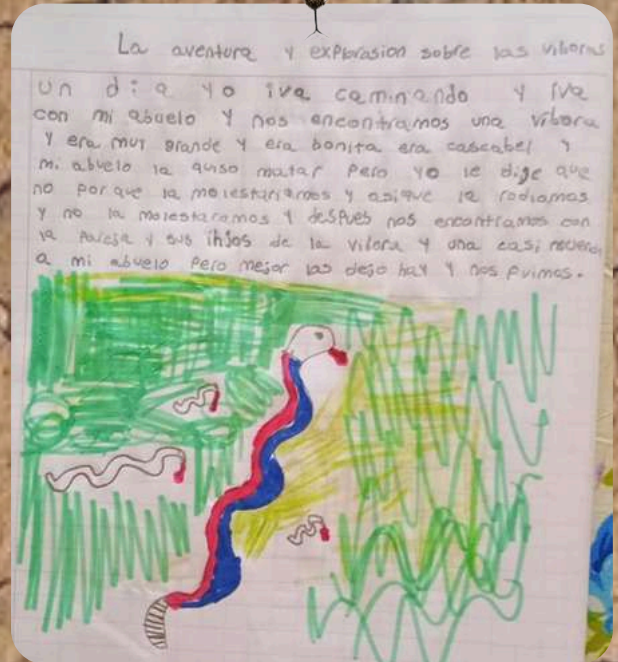 La aventura y explorasion sobre las viboras
un dia yo iva caminando y iva
con mi abuelo y nos encontramos una vibora
y era muy grande y era bonita era cascabel y
mi abuelo la quiso matar pero yo le dige que
no porque la molestariamos y asique la rodiamos
y no la molestaramos y despues nos encontramos con
la pareja y sus ihjos de la vibora y una casi
a mi abuelo pero mejor las dejo hay y nos fuimos.